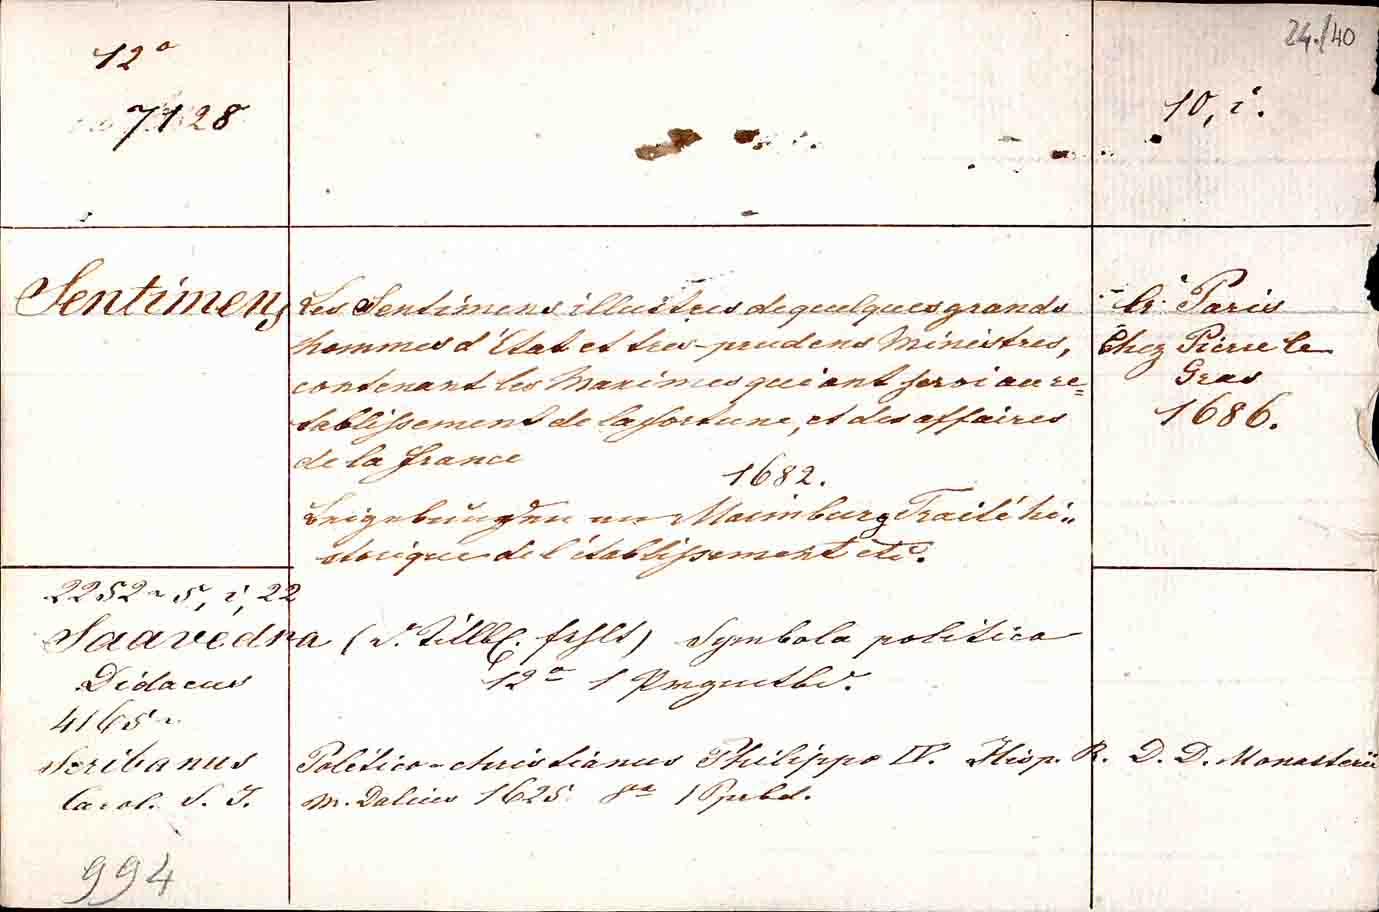 24./40
12º
7128
10, i.
Sentimens
Les Sentimens illustres de quelques grands
hommes d'État et tres-prudens Ministres,
contenant les Maximes qui ont servi au re=
tablissement de la fortune, et des affaires
de la france
1682.
Beigebunden an Maimburg Traité hi„
storique de l'établissement etc.
à Paris
Chez Pierre le
Gras
1686.
2252~5, i, 22
Saavedra (s. Titlbl. fehlt) Symbola politica
Didacus 12º 1 Prgmtbd.
4165~
Scribanus Politico-christianus Philippo IV. Hisp. R. D. D. Monasterii
Carol. S. J. m. Dalius 1625. 8º 1 Ppbd.
994